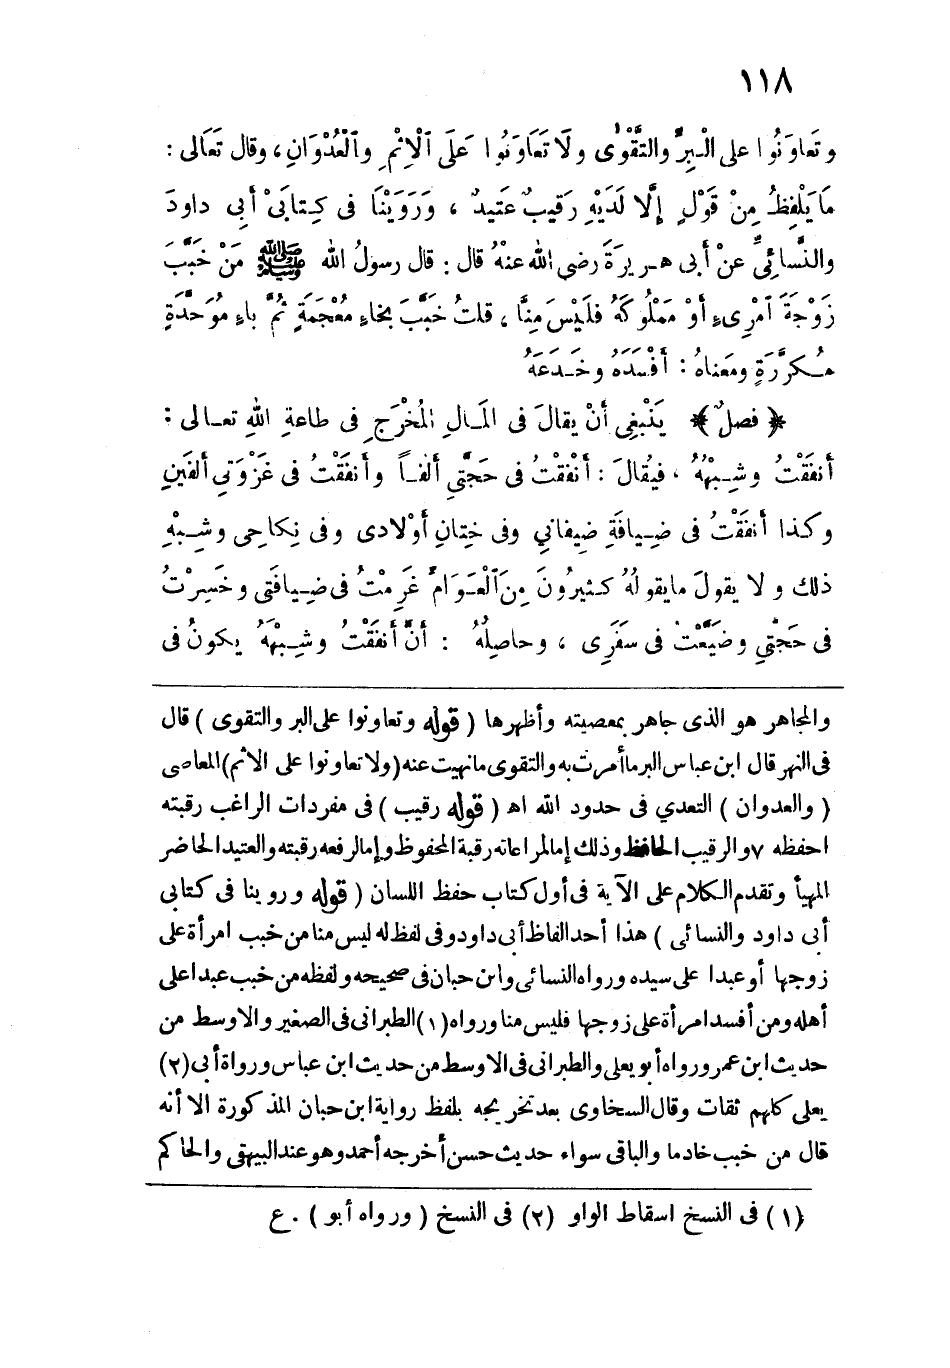 ١١٨
وتَعاوَنُوا على الْبِرِّ والتَّقْوٰى ولَا تَعَاوَنُوا عَلَى ٱلْاِثْمِ وٱلْعُدْوَانِ، وقال تَعَالى :
مَا يَلْفِظُ مِنْ قَوْلٍ إلَّا لَدَيْهِ رَقيبٌ عَتِيدٌ ، ورَوَيْنَا فى كِتابَىْ أبى داودَ
والنَّسائِىِّ عنْ أبى هـريرَةَ رضى الله عنْهُ قال : قال رسولُ الله ﷺ مَنْ خَبَّبَ
زَوْجَةَ ٱمْرِىءٍ أوْ مَمْلُوكَهُ فلَيْسَ مِنَّا ، قلتُ خَبَّبَ بخاءٍ مُعْجَمَةٍ ثُمَّ باءٍ مُوَحَّدَةٍ
مـكرَّرَةٍ ومَعناهُ : أفْسَدَهُ وخَـدَعَهُ
﴿ فصلٌ ﴾ يَنْبغِى أنْ يقالَ فى المَـالِ المُخْرَجِ فى طاعةِ اللهِ تعـالى :
أنفَقْتُ وشِـبْهُهُ ، فيُقالَ : أنْفَقْتُ فى حَجَّتِى ألفـاً وأنفَقْتُ فى غَزْوَتِى ألفَينِ
وكـذا أنفَقْتُ فى ضِـيافَةِ ضِيفانِي وفى خِتانِ أوْلادى وفى نِكاحِى وشِـبْهِ
ذلك ولا يقولَ مايقولُهُ كـثيرُونَ مِنَ ٱلْعَـوَامِّ غَرِمْتُ فى ضِـيافَتِى وخَسِرْتُ
فى حَجَّتِي وضَيَّعْتُ فى سَفَرِى ، وحاصِلُهُ : أنَّ أنفَقْتُ وشِـبْهَهُ يكونُ فى
والمجاهر هو الذى جاهر بمعصيته وأظهرها ( قوله وتعاونوا على البر والتقوى ) قال
فى النهر قال ابن عباس البر ما أمرت به والتقوى مانهيت عنه (ولا تعاونوا على الاثم) المعاصى
( والعدوان ) التعدي فى حدود الله اه ( قوله رقيب ) فى مفردات الراغب رقبته
احفظه ٧ والرقيب الحافظ وذلك إما لمراعاته رقبة المحفوظ وإما لرفعه رقبته والعتيد الحاضر
المهيأ وتقدم الكلام على الآية فى أول كتاب حفظ اللسان ( قوله وروينا فى كتابى
أبى داود والنسائى ) هذا أحد الفاظ أبى داود وفى لفظ له ليس منا من خبب امرأة على
زوجها أو عبدا على سيده ورواه النسائى وابن حبان فى صحيحه ولفظه من خبب عبدا على
أهله ومن أفسد امرأة على زوجها فليس منا ورواه (١) الطبرانى فى الصغير والاوسط من
حديث ابن عمر ورواه أبو يعلى والطبرانى فى الاوسط من حديث ابن عباس ورواة أبى (٢)
يعلى كلهم ثقات وقال السخاوى بعد تخريجه بلفظ رواية ابن حبان المذكورة الا أنه
قال من خبب خادما والباقى سواء حديث حسن أخرجه أحمد وهو عند البيهقى والحاكم
(١) فى النسخ اسقاط الواو (٢) فى النسخ ( ورواه أبو ) . ع